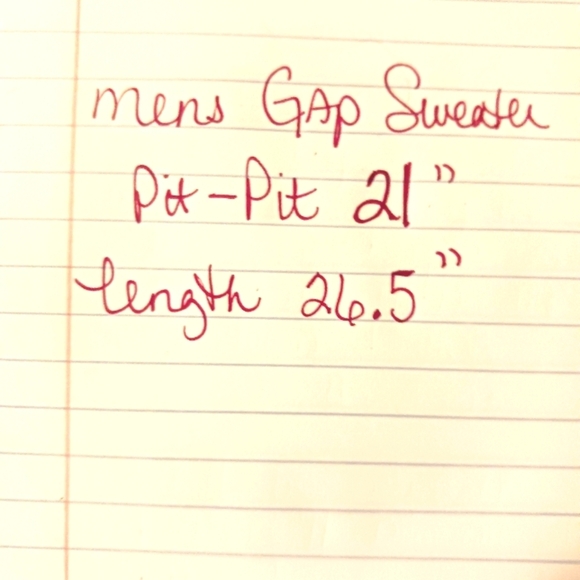 mens GAP Sweater
Pit-Pit 21"
length 26.5"